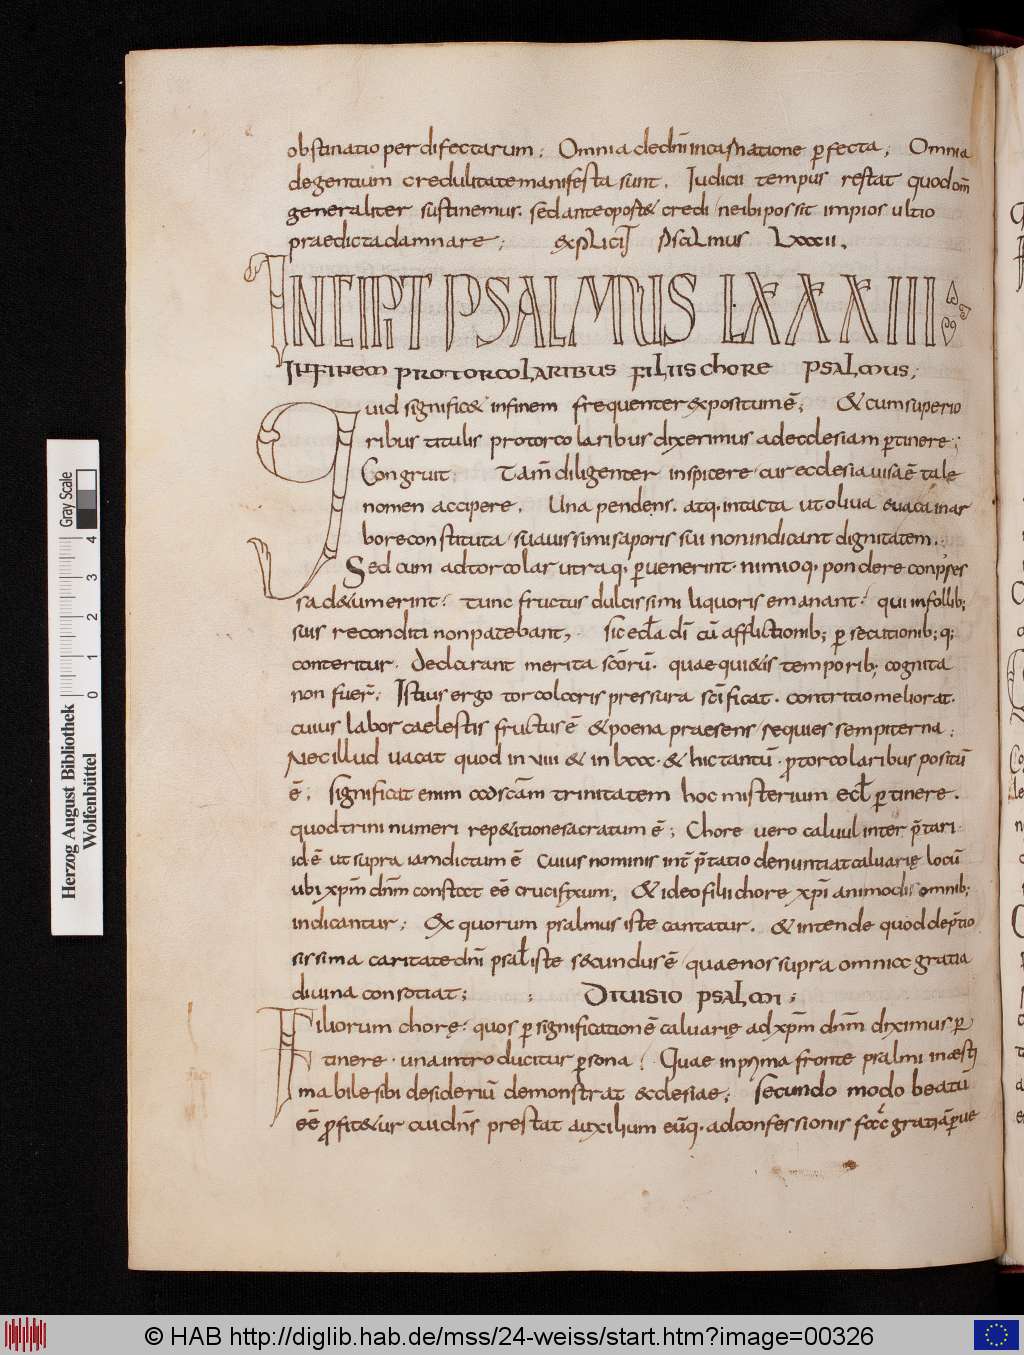 obstinatio per difectarum; Omnia de dn̄i incarnatione ꝑfecta; Omnia
degentium credulitate manifesta sunt. Iudicii tempus restat quod om̄
generaliter sustinemus. sed ante oport& credi ne ibi possit impios ultio
praedicta damnare; explicit psalmus Lxxxii.
INCIPIT PSALMUS LXXXIII
IN FINEM PRO TORCOLARIBUS FILIIS CHORE PSALMUS;
Quid signific& in finem frequenter expositum ē; & cum superio
ribus titulis pro torcolaribus dixerimus ad ecclesiam ꝑtinere;
Congruit; Tam̄ diligenter inspicere cur ecclesia uisa ē tale
nomen accipere. Una pendens. atq. intacta ut oliua & uaca in ar
bore constituta suauissimi saporis sui non indicant dignitatem.
Sed cum ad torcolar utraq. ꝑuenerint. nimioq. pondere conpres
sa d&umerint. tunc fructus dulcissimi liquoris emanant. qui in follib;
suis reconditi non patebant, sic eccl̄a dī cū afflictionib; ꝑsecutionib;q;
conteritur. Declarant merita scōrū. quae qui&is temporib; cognita
non fuer̄; Istius ergo torcolaris pressura scīficat. contritio meliorat.
cuius labor caelestis fructus ē & poena praesens requies sempiterna;
Nec illud uacat quod in viii & in lxxx. & hic tantū. pro torcolaribus positū
ē; significat enim ad scām trinitatem hoc misterium eccl̄ ꝑtinere.
quod trini numeri rep&itione sacratum ē; Chore uero caluul inter p̄tari
id ē ut supra iam dictum ē cuius nominis int̄p̄tatio denuntiat caluarię locū
ubi xp̄m dn̄m constat eē crucifixum; & ideo filii chore xp̄i animo dii omnib;
indicantur; Ex quorum psalmus iste cantatur. & intende quod dep̄tio
sissima caritate dn̄i psal iste secundus ē quae nos supra omnia gratia
diuina consotiat; DIUISIO PSALMI;
Filiorum chorę. quos ꝑ significationē caluarię ad xp̄m dn̄m diximus ꝑ
tinere. una introducitur ꝑsona; Quae in prima fronte psalmi inaesti
mabile sibi desideriū demonstrat ecclesiae; secundo modo beatū
eē profit&ur cui dn̄s prestat auxilium eūq. ad confessionis fac& gratiā ꝑue
Herzog August Bibliothek
Wolfenbüttel
Gray Scale
0 1 2 3 4
© HAB http://diglib.hab.de/mss/24-weiss/start.htm?image=00326